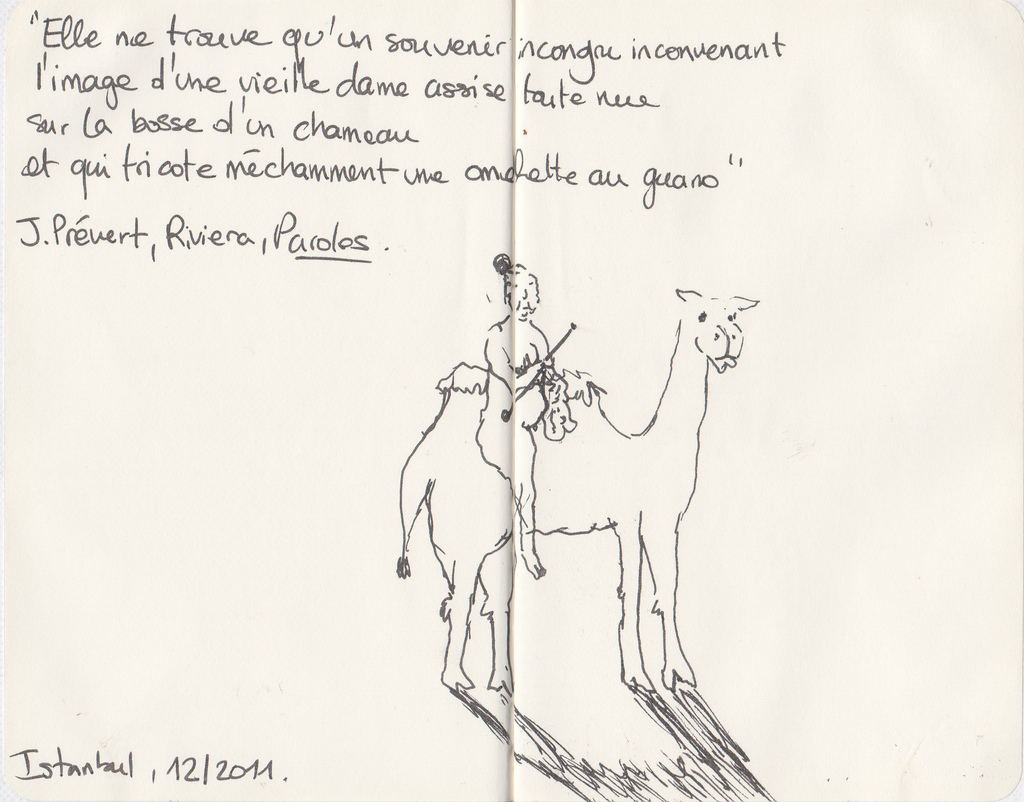 "Elle ne trouve qu'un souvenir incongru inconvenant
l'image d'une vieille dame assise toute nue
sur la bosse d'un chameau
et qui tricote méchamment une omelette au guano"
J. Prévert, Riviera, Paroles.
Istanbul, 12/2011.